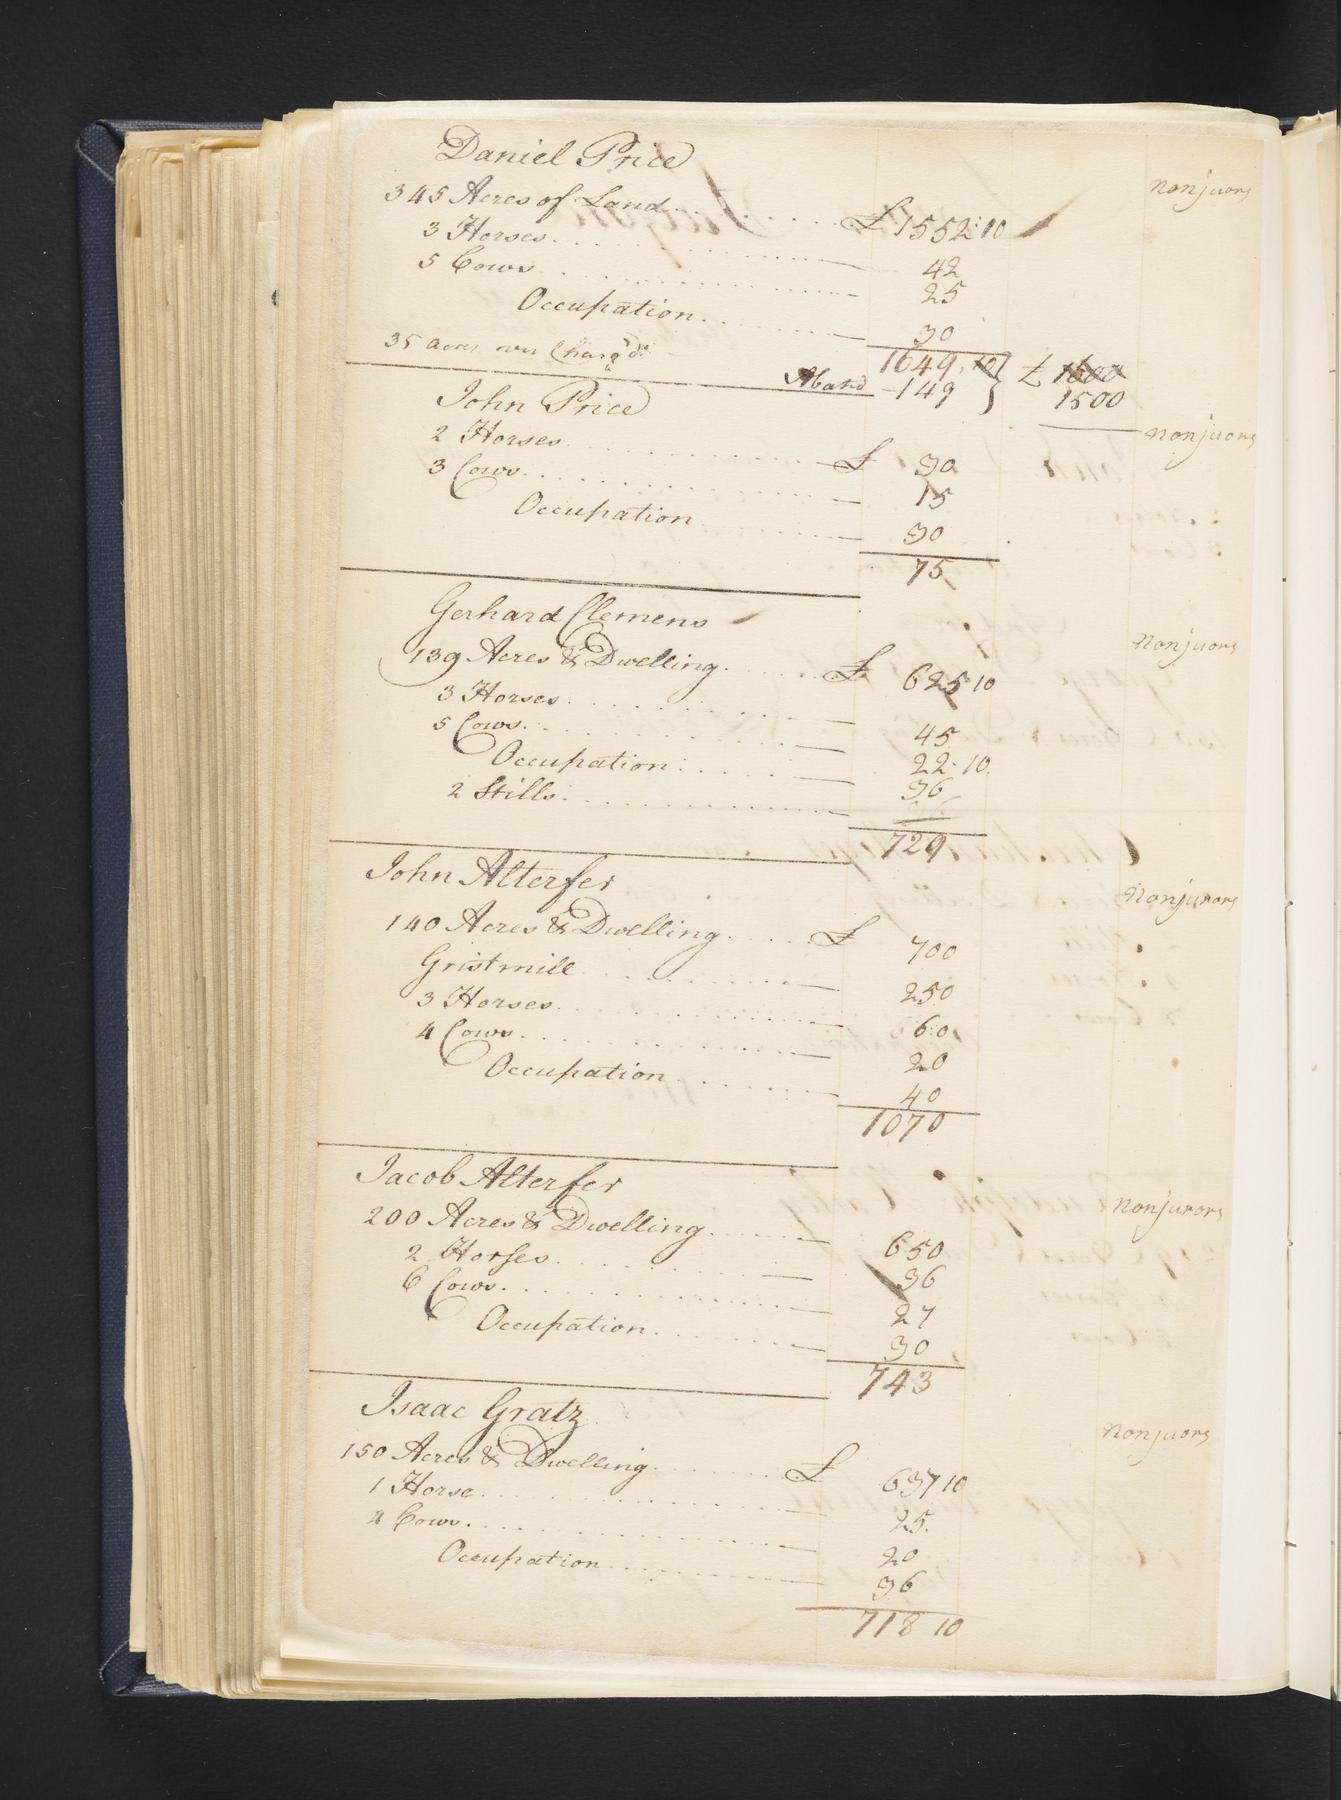 Daniel Price
nonjuors
345 Acres of Land £ 1552:10
3 Horses 42
5 Cows 25
Occupation 30
35 acres over Charg'd 1649,10
Abatd -149 } £ 1600
1500
John Price
nonjuors
2 Horses £ 30
3 Cows 15
Occupation 30
75
Gerhard Clemens
nonjuors
139 Acres & Dwelling £ 625 10
3 Horses 45
5 Cows 22:10
Occupation 36
2 Stills
729
John Alterfer
nonjurors
140 Acres & Dwelling £ 700
Gristmill 250
3 Horses 60
4 Cows 20
Occupation 40
1070
Jacob Alterfer
nonjurors
200 Acres & Dwelling 650
2 Horses 36
6 Cows 27
Occupation 30
743
Isaac Gratz
nonjuors
150 Acres & Dwelling £ 637 10
1 Horse 25
4 Cows 20
Occupation 36
718 10